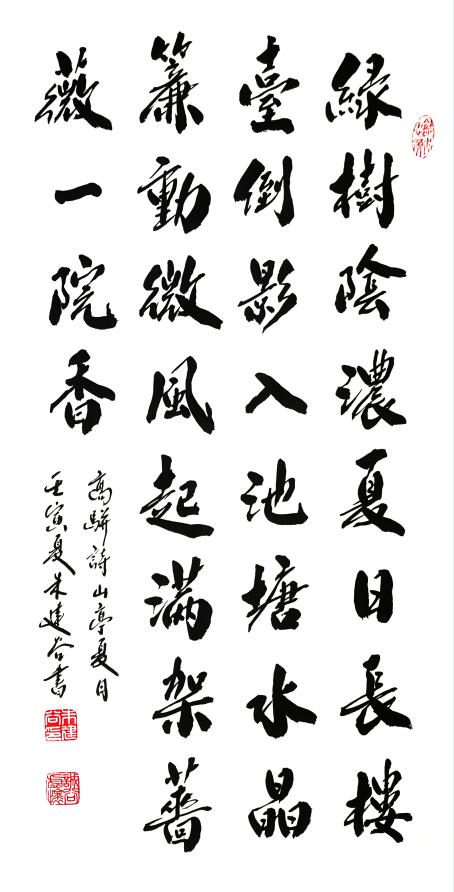 緑樹陰濃夏日長樓
臺倒影入池塘水晶
簾動微風起滿架薔
薇一院香
高駢詩山亭夏日
壬寅夏朱建谷書